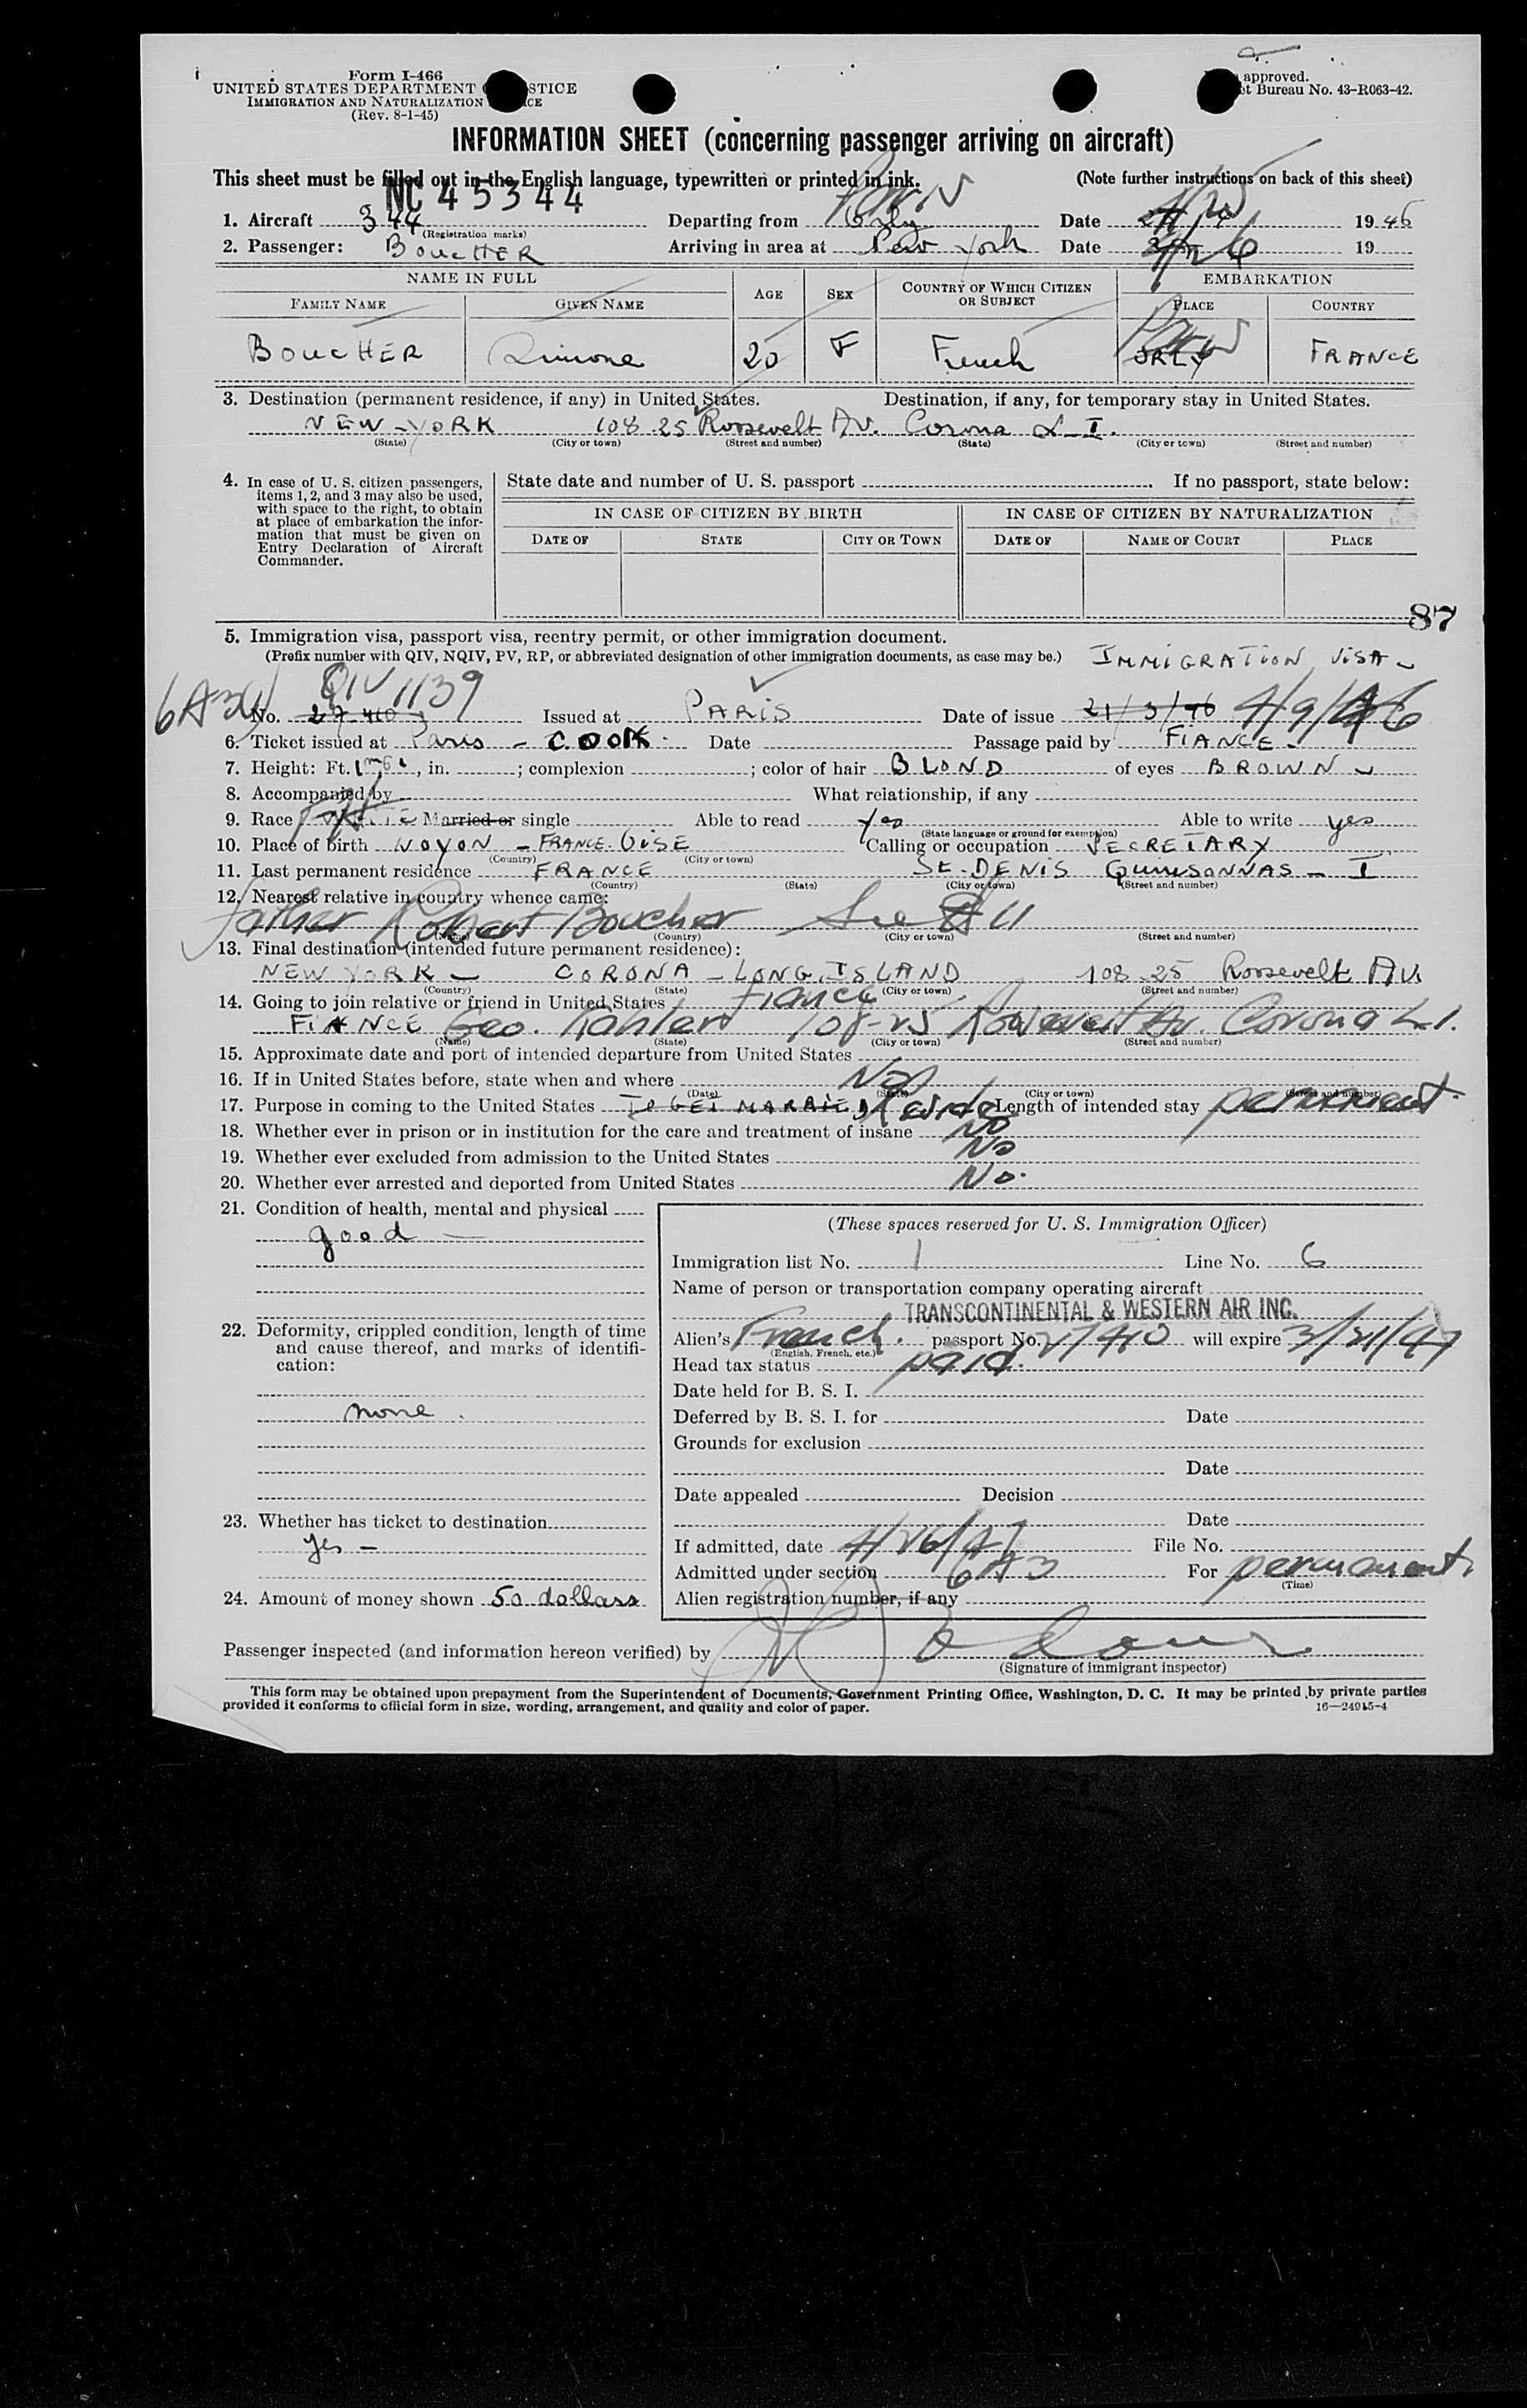 Form I-466
UNITED STATES DEPARTMENT STICE
IMMIGRATION AND NATURALIZATION CE
(Rev. 8-1-45)
approved.
et Bureau No. 43-R063-42.
INFORMATION SHEET (concerning passenger arriving on aircraft)
This sheet must be filled out in the English language, typewritten or printed in ink. (Note further instructions on back of this sheet)
NC 45344
1. Aircraft 344 Departing from Orly Date 1946
(Registration marks)
2. Passenger: BoucHER Arriving in area at New York Date 19
NAME IN FULL AGE SEX COUNTRY OF WHICH CITIZEN OR SUBJECT EMBARKATION
FAMILY NAME GIVEN NAME PLACE COUNTRY
BoucHER Simone 20 F French ORLY FRANCE
3. Destination (permanent residence, if any) in United States. Destination, if any, for temporary stay in United States.
NEW-YORK 108-25 Roosevelt Av. Corona L-I.
(State) (City or town) (Street and number) (State) (City or town) (Street and number)
4. In case of U. S. citizen passengers, items 1, 2, and 3 may also be used, with space to the right, to obtain at place of embarkation the information that must be given on Entry Declaration of Aircraft Commander.
State date and number of U. S. passport If no passport, state below:
IN CASE OF CITIZEN BY BIRTH IN CASE OF CITIZEN BY NATURALIZATION
DATE OF STATE CITY OR TOWN DATE OF NAME OF COURT PLACE
87
5. Immigration visa, passport visa, reentry permit, or other immigration document.
(Prefix number with QIV, NQIV, PV, RP, or abbreviated designation of other immigration documents, as case may be.) IMMIGRATION VISA -
QIV 1139
6A3
No. 27410 Issued at PARIS Date of issue 21/3/46 4/9/46
6. Ticket issued at Paris - COOK Date Passage paid by FIANCE -
7. Height: Ft. , in. ; complexion ; color of hair BLOND of eyes BROWN -
8. Accompanied by What relationship, if any
9. Race Married or single Able to read yes Able to write yes
(State language or ground for exemption)
10. Place of birth NOYON - FRANCE. OISE Calling or occupation SECRETARY
(Country) (City or town)
11. Last permanent residence FRANCE St-DENIS - I
(Country) (State) (City or town) (Street and number)
12. Nearest relative in country whence came:
father Robert Boucher See # 11
(Name) (Country) (City or town) (Street and number)
13. Final destination (intended future permanent residence):
NEW YORK - CORONA - LONG. ISLAND 108-25 Roosevelt Av.
(Country) (State) (City or town) (Street and number)
14. Going to join relative or friend in United States fiance
FIANCE Geo. Kahlert 108-25 Roosevelt Av. Corona L.I.
(Name) (State) (City or town) (Street and number)
15. Approximate date and port of intended departure from United States
16. If in United States before, state when and where No
(Date) (State) (City or town) (Street and number)
17. Purpose in coming to the United States TO GET MARRIED Reside Length of intended stay permanent
18. Whether ever in prison or in institution for the care and treatment of insane NO
19. Whether ever excluded from admission to the United States No
20. Whether ever arrested and deported from United States No.
21. Condition of health, mental and physical
good -
22. Deformity, crippled condition, length of time and cause thereof, and marks of identification:
none.
23. Whether has ticket to destination
yes -
24. Amount of money shown 50 dollars
(These spaces reserved for U. S. Immigration Officer)
Immigration list No. 1 Line No. 6
Name of person or transportation company operating aircraft
TRANSCONTINENTAL & WESTERN AIR INC.
Alien's French. passport No. 27410 will expire 3/21/47
(English, French, etc.)
Head tax status paid.
Date held for B. S. I.
Deferred by B. S. I. for Date
Grounds for exclusion
Date
Date appealed Decision
Date
If admitted, date 4/26/47 File No.
Admitted under section 6A3 For permanent
(Time)
Alien registration number, if any
Passenger inspected (and information hereon verified) by
(Signature of immigrant inspector)
This form may be obtained upon prepayment from the Superintendent of Documents, Government Printing Office, Washington, D. C. It may be printed by private parties
provided it conforms to official form in size, wording, arrangement, and quality and color of paper. 16-24915-4